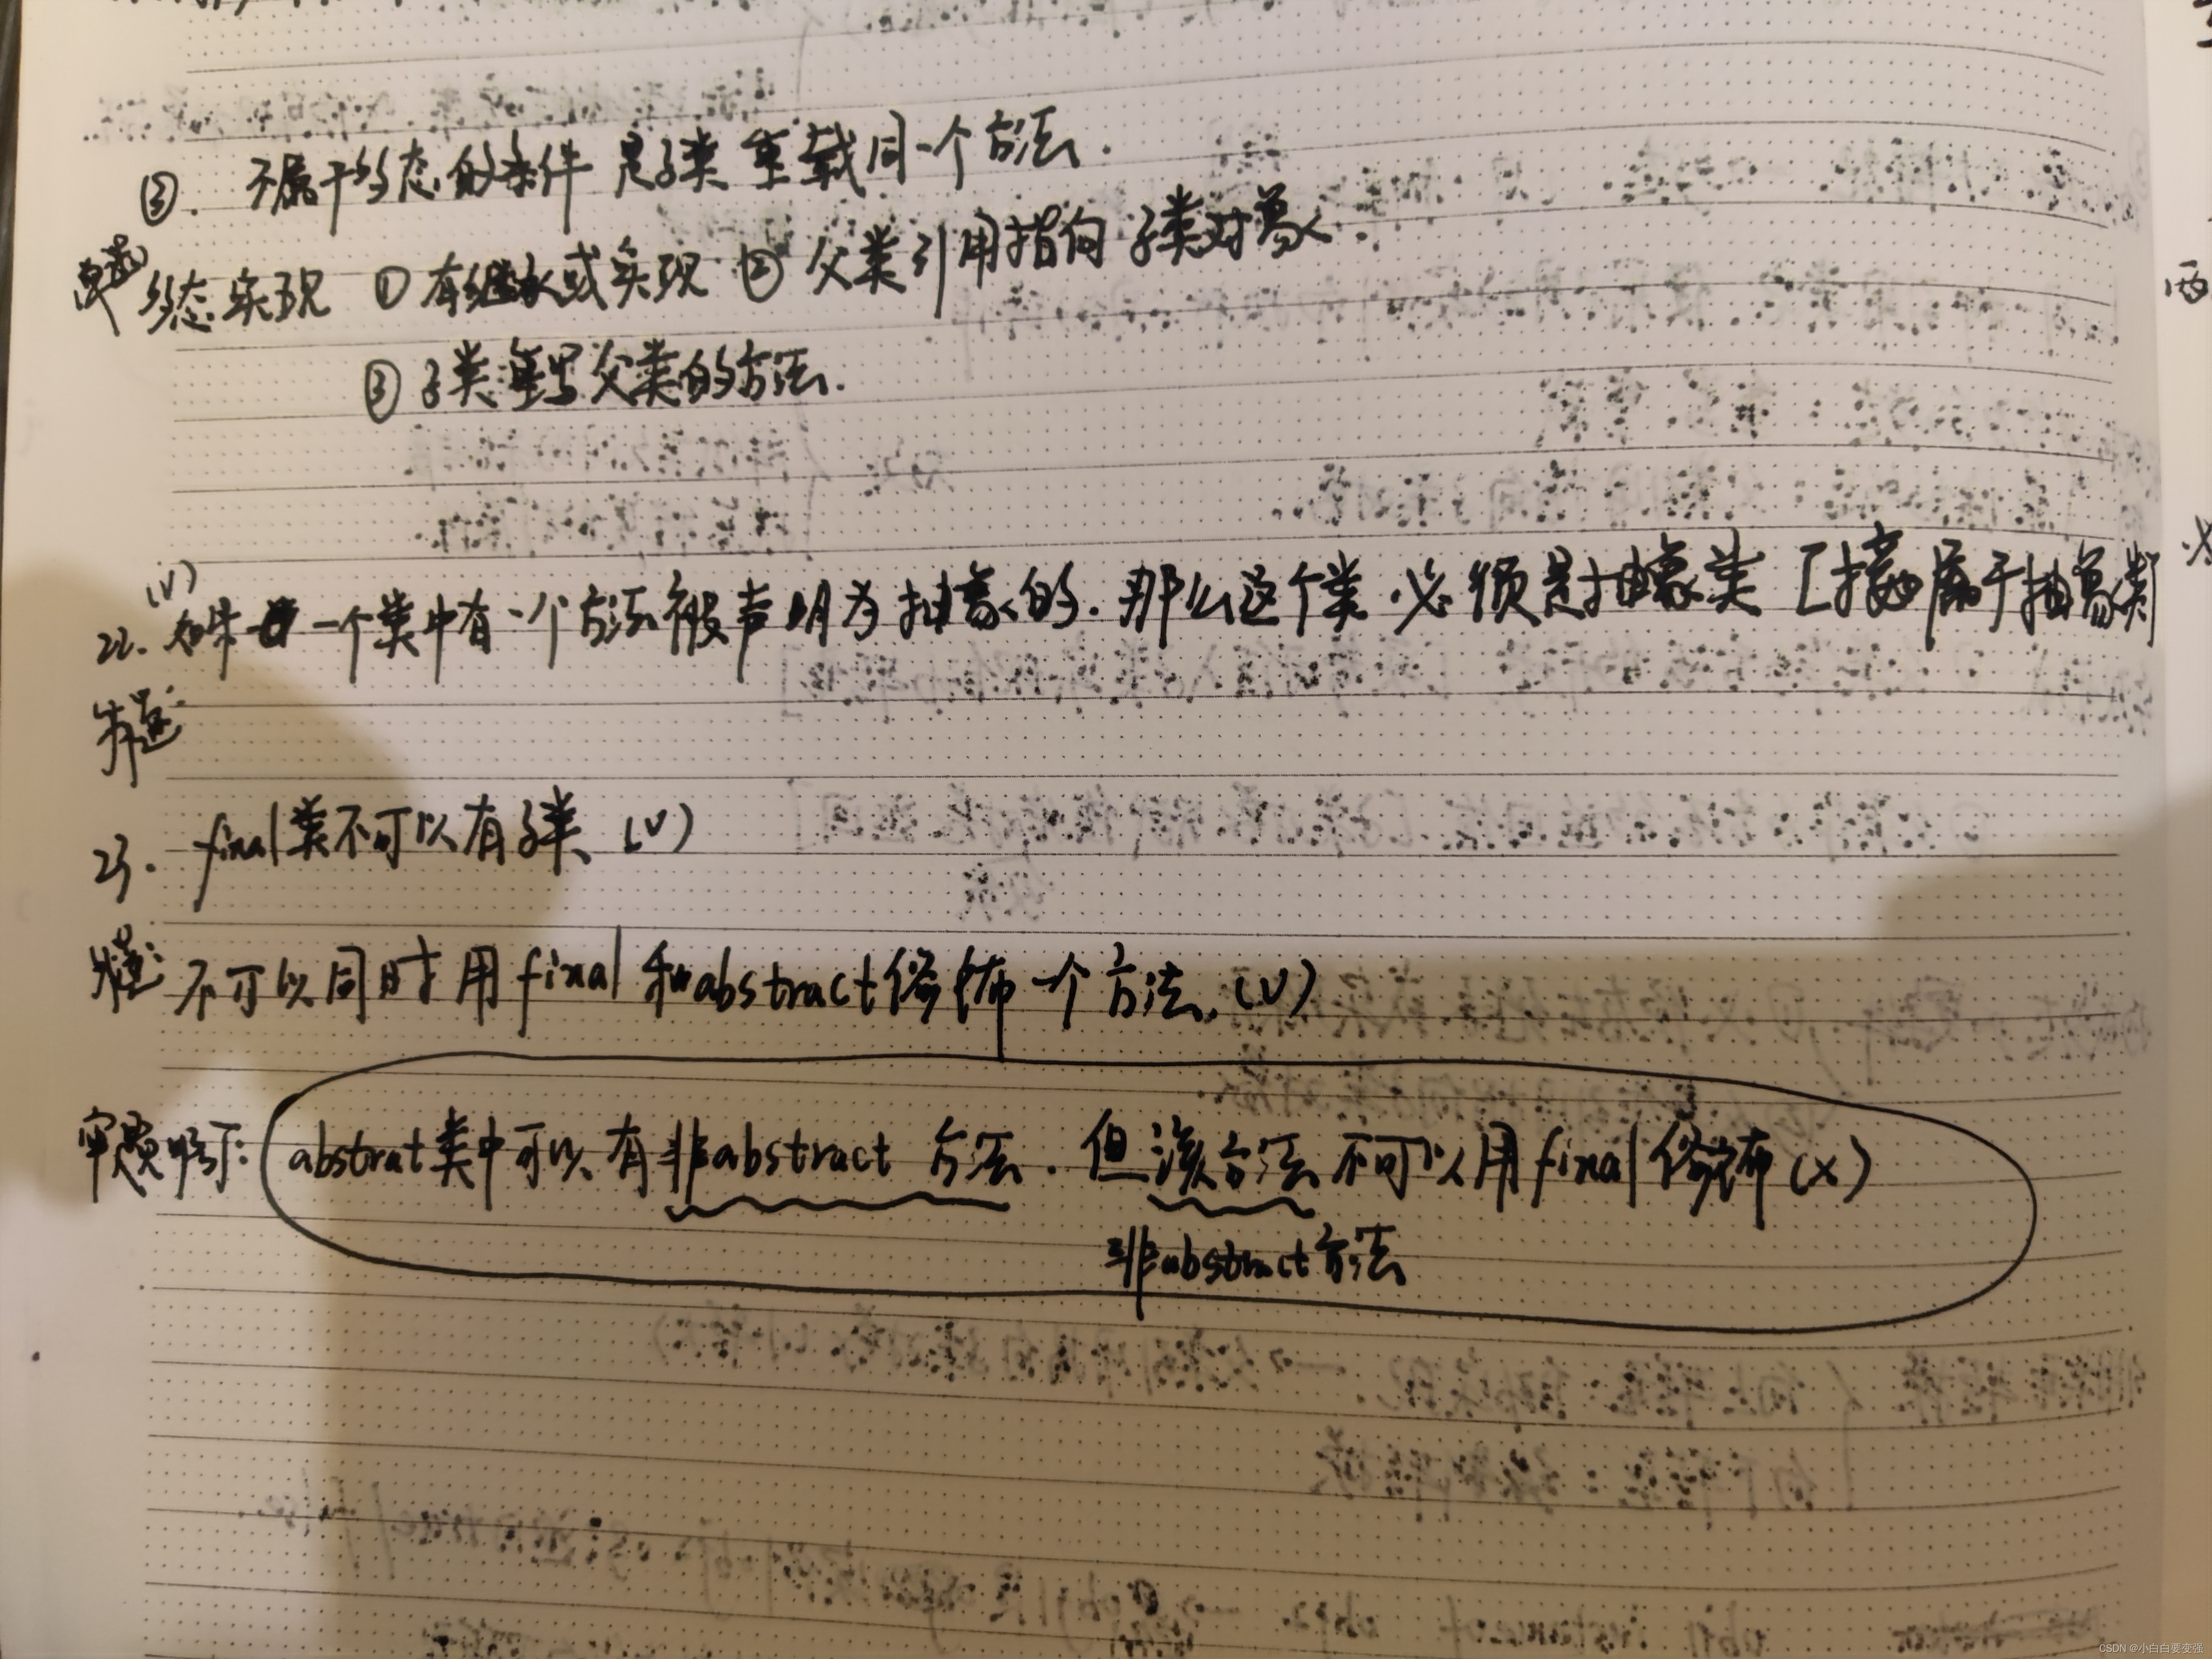 ③. 不属于多态的条件 是子类 重载同一个方法.
多态实现 ①有继承或实现 ② 父类引用指向 子类对象.
③ 子类重写父类的方法.
(√)
22. 如果 一个类中有一个方法被声明为抽象的. 那么这个类 必须是抽象类 [接口属于抽象类
类题:
23. final类不可以有子类 (√)
类题: 不可以同时用final和abstract修饰一个方法. (√)
审题步骤: abstrat类中可以有非abstract 方法. 但该方法不可以用final修饰 (×)
非abstract方法
CSDN @小白白要变强